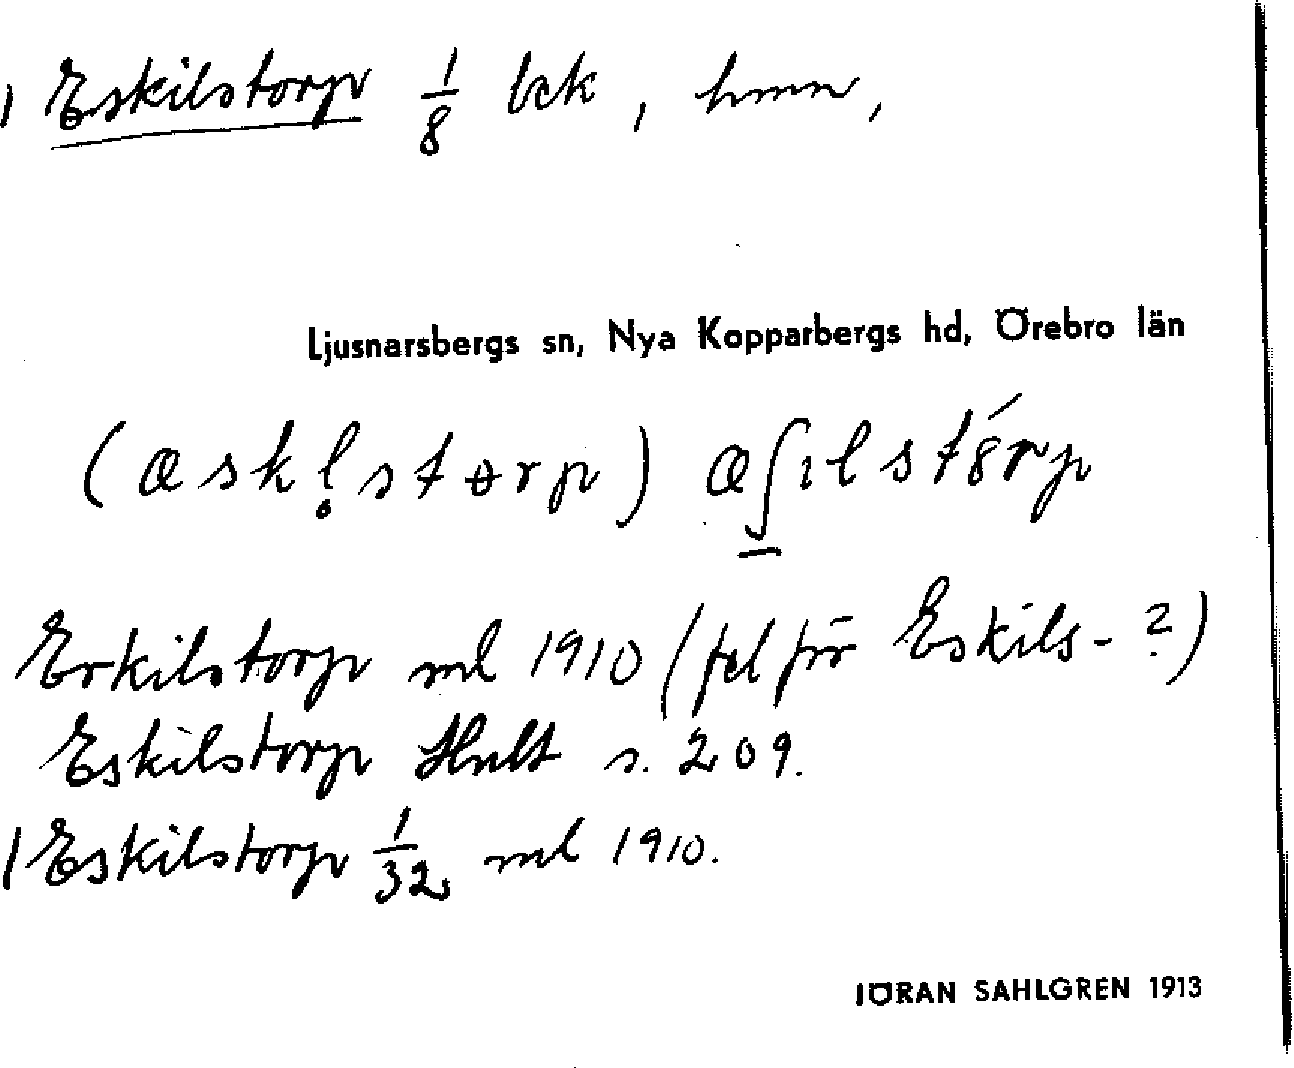 ) Eskilstorp 1/8 bek, hmn,
Ljusnarsbergs sn, Nya Kopparbergs hd, Örebro län
(æskl̥storp)
Erkilstorp ml 1910 (fel för Eskils-?)
Eskilstorp Hult s. 209.
) Eskilstorp 1/32 ml 1910.
JÖRAN SAHLGREN 1913